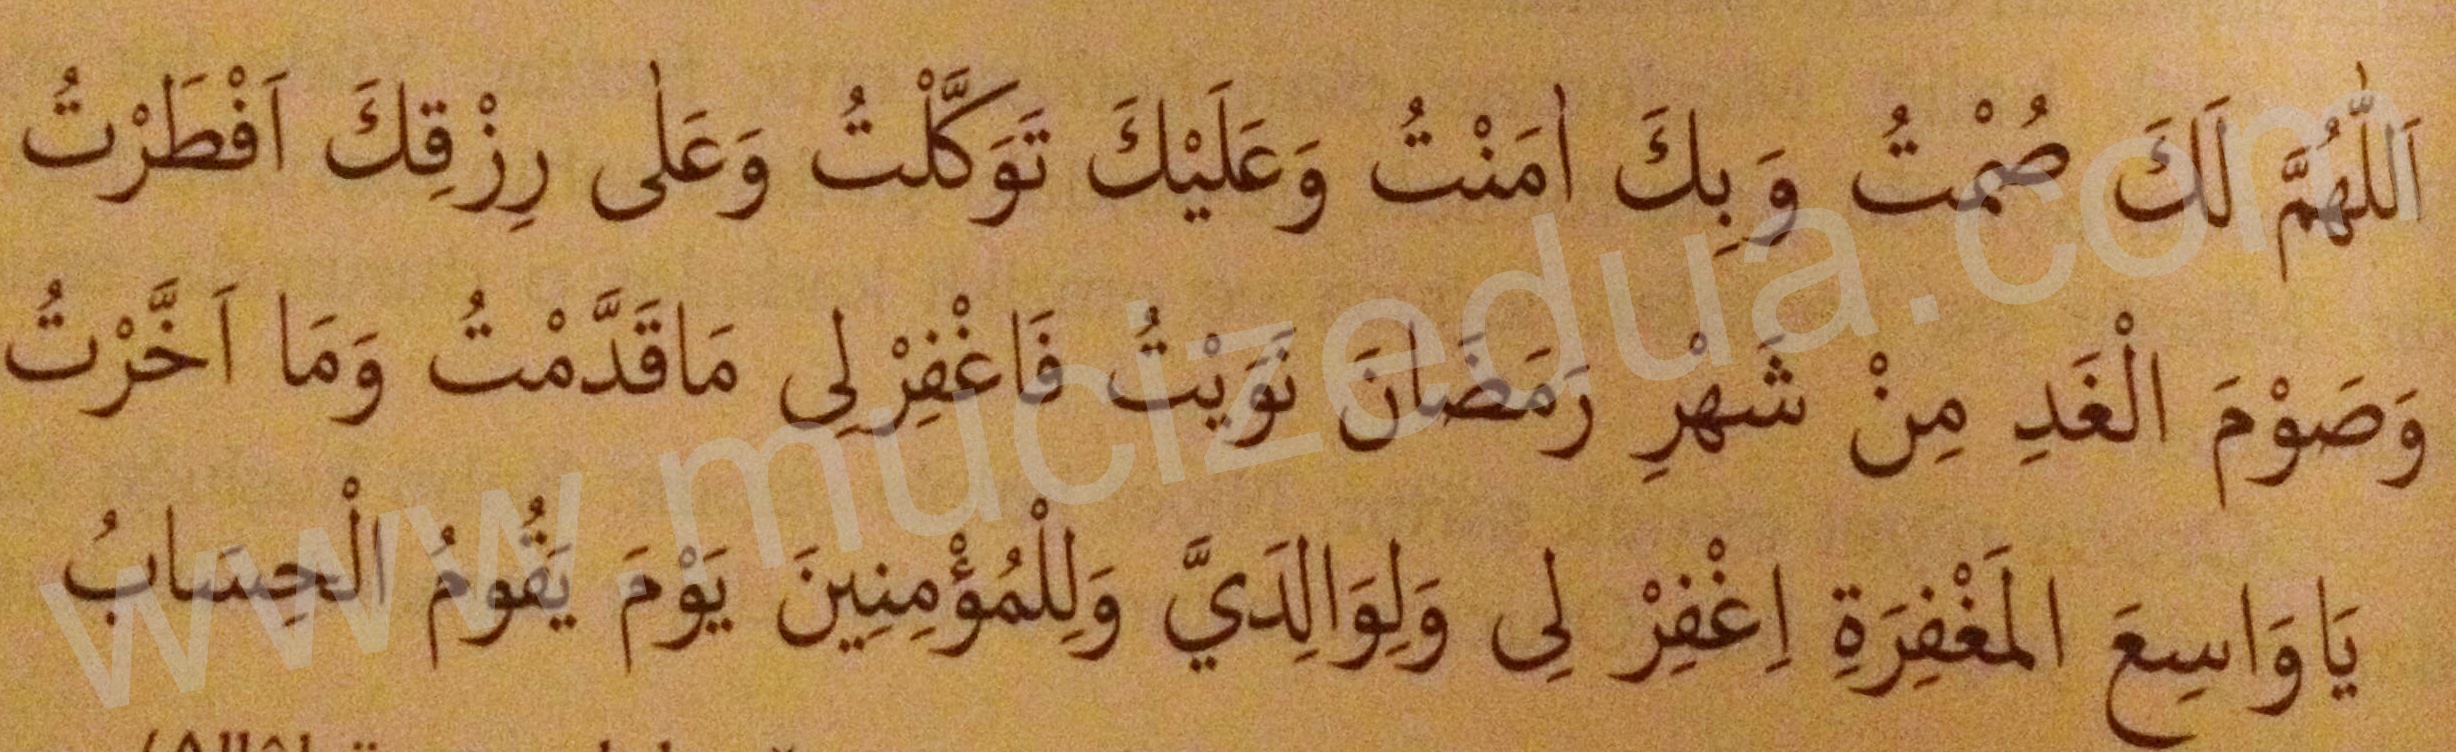 اَللّٰهُمَّ لَكَ صُمْتُ وَبِكَ اٰمَنْتُ وَعَلَيْكَ تَوَكَّلْتُ وَعَلٰى رِزْقِكَ اَفْطَرْتُ
وَصَوْمَ الْغَدِ مِنْ شَهْرِ رَمَضَانَ نَوَيْتُ فَاغْفِرْلِى مَاقَدَّمْتُ وَمَا اَخَّرْتُ
يَاوَاسِعَ المَغْفِرَةِ اِغْفِرْ لِى وَلِوَالِدَيَّ وَلِلْمُؤْمِنِينَ يَوْمَ يَقُومُ الْحِسَابُ
www.mucizedua.com